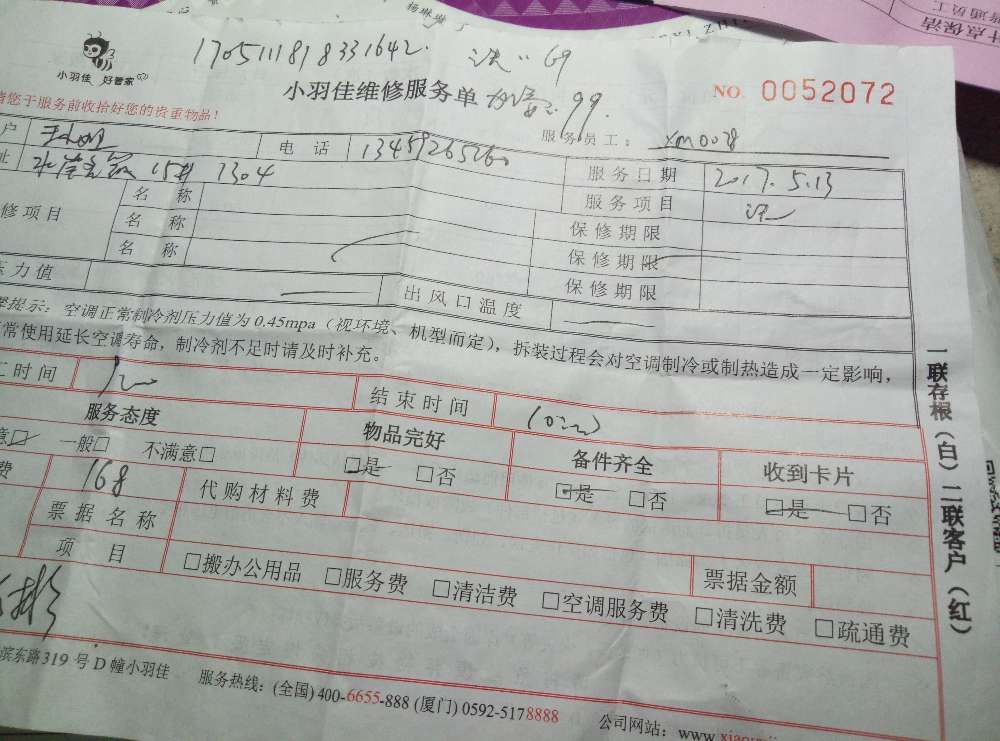 杨琳
小羽佳 好管家
1705111818331642.
洗:69
小羽佳维修服务单
99.
NO. 0052072
请您于服务前收拾好您的贵重物品！
服务员工： xm0028
户
电 话 13459265260
服务日期 2017.5.13
址 15# 1304
服务项目 洗
修项目
名 称
保修期限
名 称
保修期限
名 称
保修期限
压力值
出风口温度
提示：空调正常制冷剂压力值为 0.45mpa（视环境、机型而定），拆装过程会对空调制冷或制热造成一定影响，
常使用延长空调寿命，制冷剂不足时请及时补充。
工时间
结束时间
服务态度
物品完好
备件齐全
收到卡片
意☑ 一般□ 不满意□
☑是 □否
☑是 □否
☑是 □否
费 168
代购材料费
票据名称
项 目
□搬办公用品 □服务费 □清洁费 □空调服务费 □清洗费 □疏通费
票据金额
一联存根（白）二联客户（红）
滨东路319 号 D 幢小羽佳
服务热线：(全国) 400-6655-888 (厦门) 0592-5178888
公司网站：www.xiaoyu
点保洁
普通员工